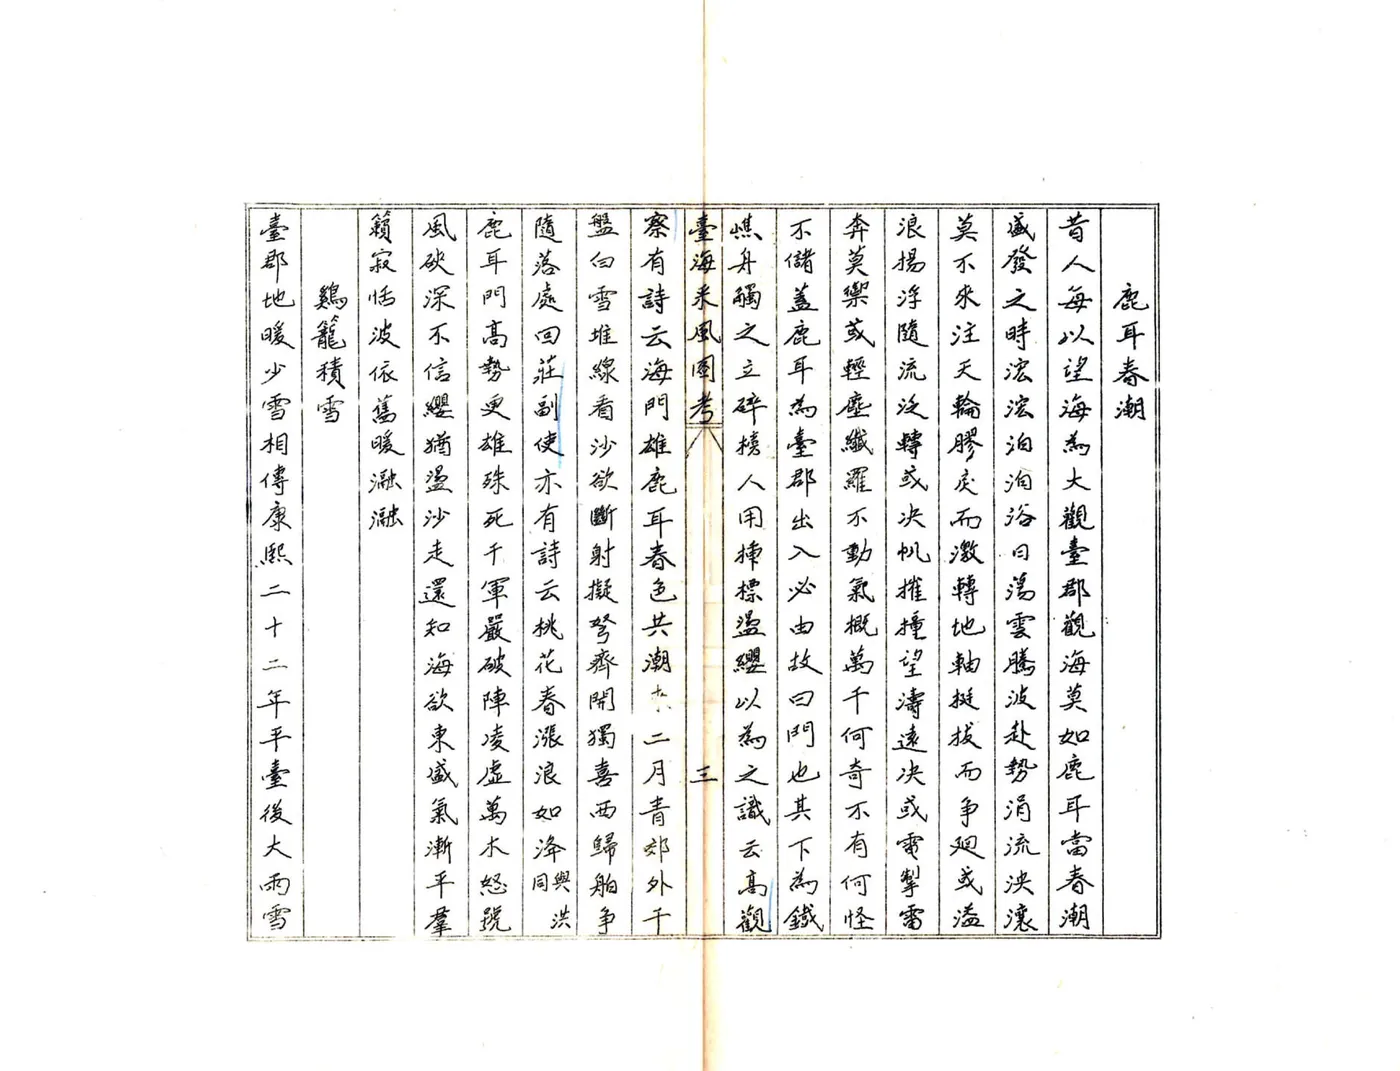 鹿耳春潮
昔人每以望海為大觀臺郡觀海莫如鹿耳當春潮
盛發之時浤浤汩汩浴日蕩雲騰波赴勢涓流泱瀼
莫不來注天輪膠戾而激轉地軸挺拔而爭廻或溢
浪揚浮隨流泛轉或决帆摧撞望濤遠决或電掣雷
奔莫禦或輕塵纖羅不動氣概萬千何奇不有何怪
不儲蓋鹿耳為臺郡出入必由故曰門也其下為鐵
嶕舟觸之立碎榜人用揷標盪纓以為之識云高觀
臺海采風圖考
三
察有詩云海門雄鹿耳春色共潮來二月青郊外千
盤白雪堆線看沙欲斷射擬弩齊開獨喜西歸舶爭
隨落處回莊副使亦有詩云桃花春漲浪如洚與洪同
鹿耳門高勢更雄殊死千軍嚴破陣凌虛萬木怒號
風硤深不信纓猶盪沙走還知海欲東盛氣漸平羣
籟寂恬波依舊暖瀜瀜
鷄籠積雪
臺郡地暖少雪相傳康熙二十二年平臺後大雨雪